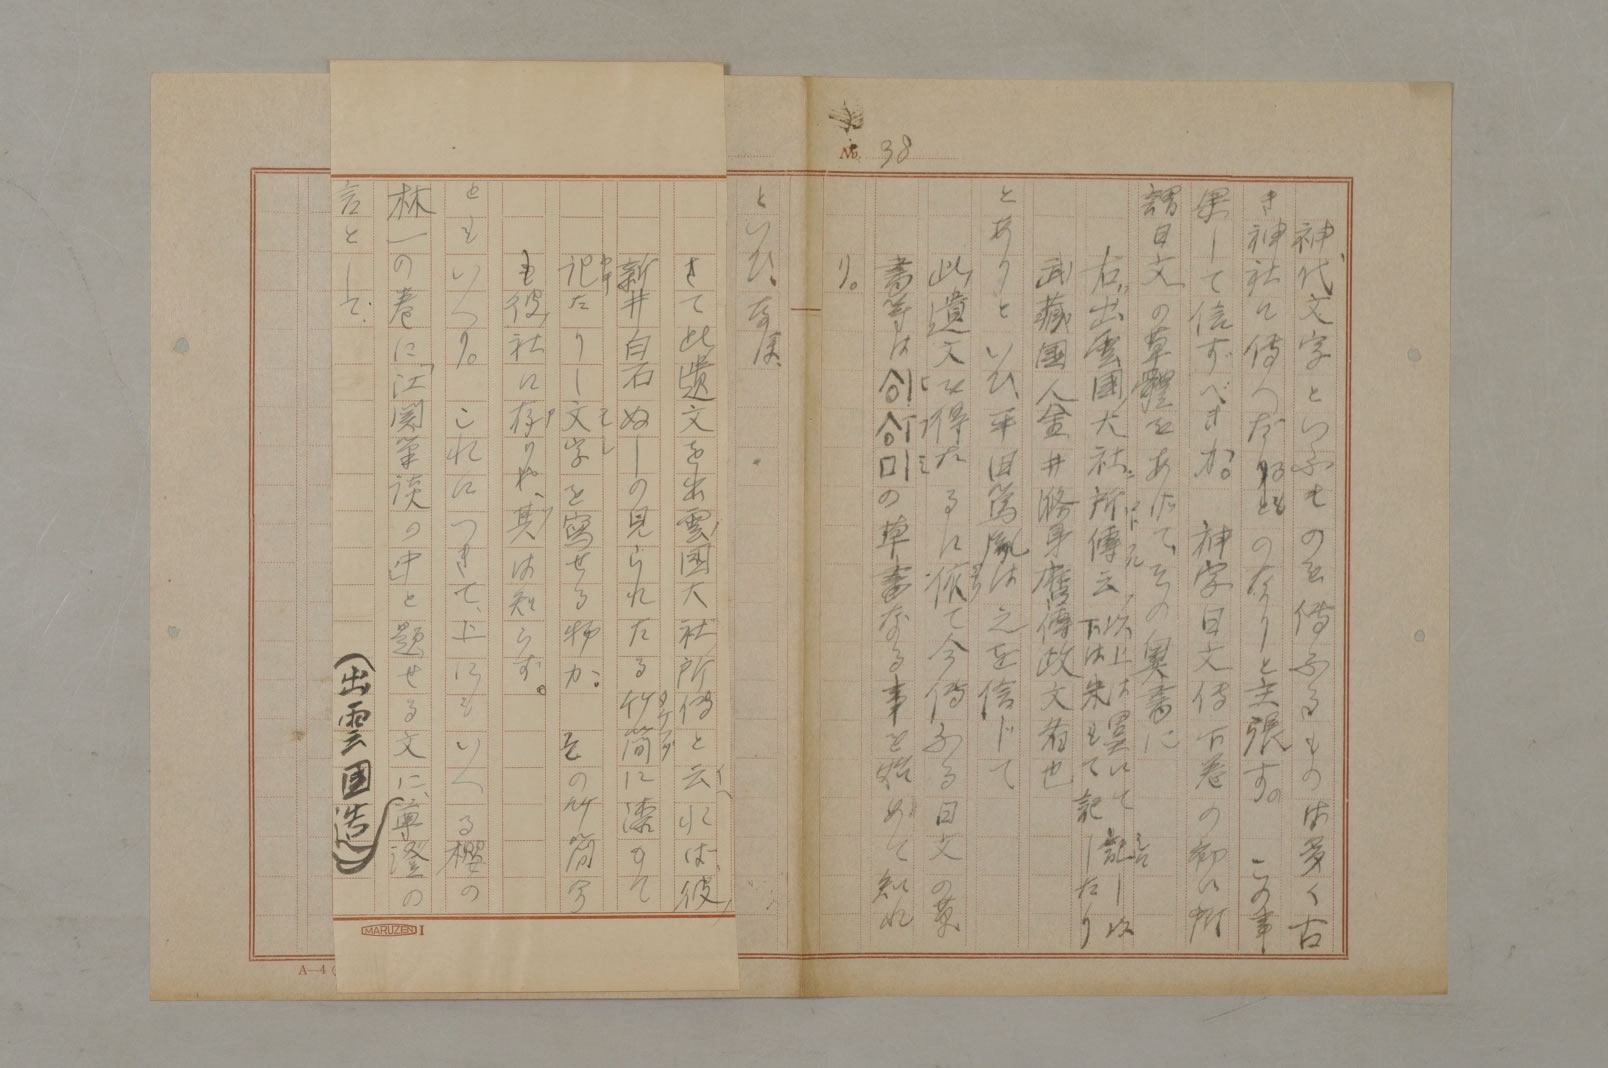 No. 38
神代文字といふものを傳ふるものは多く古
き神社に傳へたるもの なりと主張す。この事
果して信ずべきか。神字日文傳下巻の初に所
謂日文の草體をあげて、その奥書に
右出雲國大社所傳云 以上は墨にて記し以下は朱もて記したり
武藏國人金井滌身麿傳政文者也
とありといひ、平田篤胤は之を信じて
此遺文を得たるに依て今傳ふる日文の
書等は の草書なる事を始めて知れ
り。
といひ、なほ
さて此遺文を出雲国大社所傳と云れば、彼
新井白石ぬしの見られたる竹簡に漆もて
記たりし文字を寫せる物か。その竹簡今
も彼社に存りや、其は知らず。
ともいへり。これにつきて、上にもいへる櫻の
林一の巻に「江関筆談の中と題せる文に、真澄の
言として、
(出雲国造)
MARUZEN I
A-4